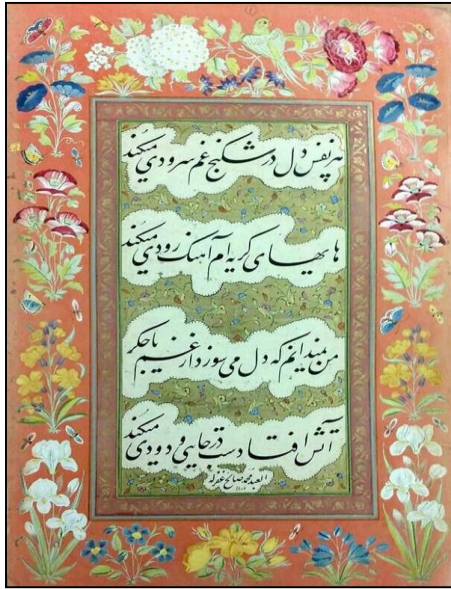 هر نفس دل در شکنج غم سرودی میکند
هایهای گریه ام آهنگ رودی میکند
من نمیدانم که دل می سوزد از غم یا جگر
آتش افتادست در جایی و دودی میکند
العبد محمد صالح غفرله